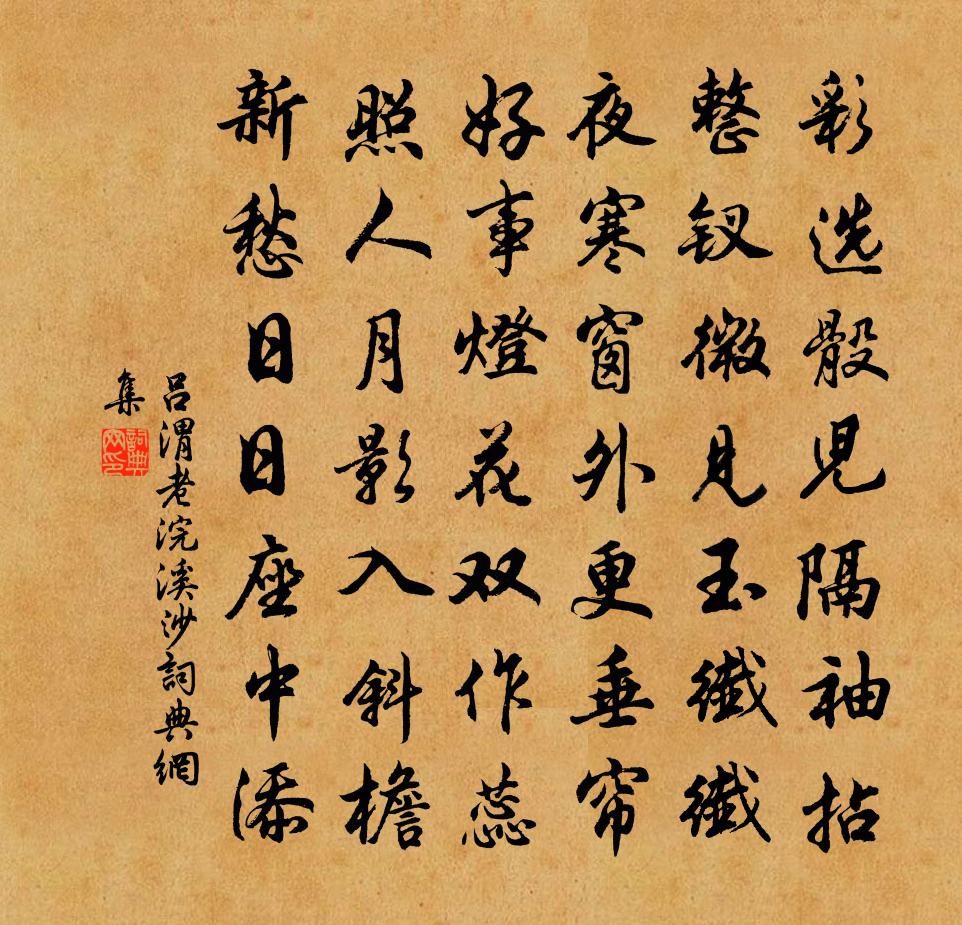 彩选骰児隔袖拈
整钗微見玉纖纖
夜寒窗外更垂帘
好事燈花双作蕊
照人月影入斜檐
新愁日日座中添
吕渭老浣溪沙詞典網
集
詞典网印